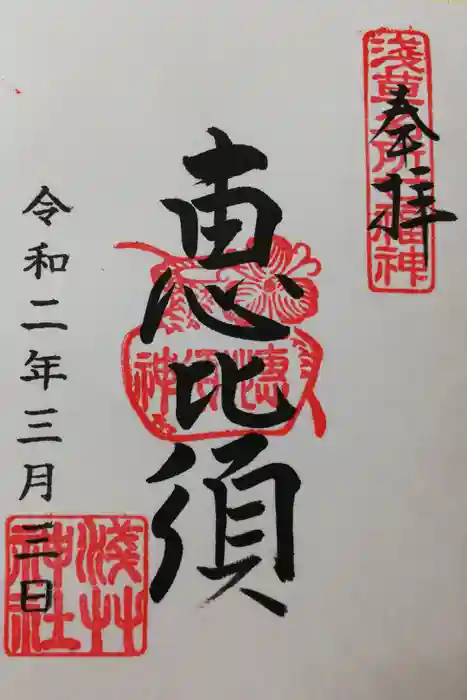 奉拝
浅草名所七福神
恵比須
恵比須神
令和二年三月三日
浅艸神社